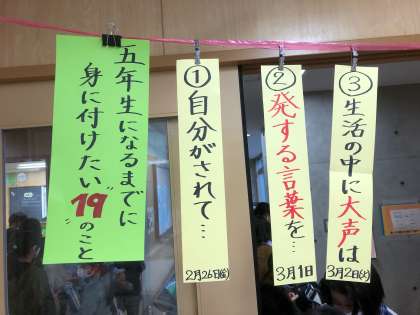 五年生になるまでに
身に付けたい
"19"のこと
①自分がされて…
2月26日(金)
②発する言葉を…
3月1日
③生活の中に大声は
3月2日(火)